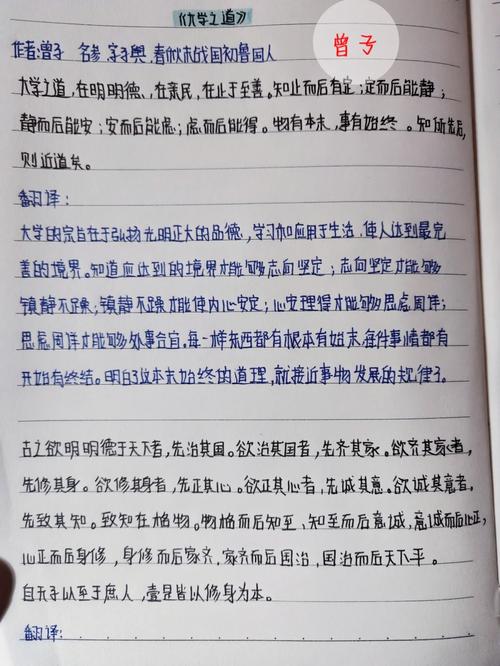 《大学之道》
曾子
作者:曾子 名参,字子舆,春秋末战国初鲁国人
大学之道,在明明德,在亲民,在止于至善。知止而后有定;定而后能静;
静而后能安;安而后能虑;虑而后能得。物有本末,事有始终。知所先后,
则近道矣。
翻译:
大学的宗旨在于弘扬光明正大的品德,学习和应用于生活,使人达到最完
善的境界。知道应达到的境界才能够志向坚定;志向坚定才能够
镇静不躁;镇静不躁才能使内心安定;心安理得才能够思虑周详;
思虑周详才能够处事合宜。每一样东西都有根本有始末,每件事情都有
开始有终结。明白了这本末始终的道理,就接近事物发展的规律了。
古之欲明明德于天下者,先治其国。欲治其国者,先齐其家。欲齐其家者,
先修其身。欲修其身者,先正其心。欲正其心者,先诚其意。欲诚其意者,
先致其知。致知在格物。物格而后知至,知至而后意诚,意诚而后心正,
心正而后身修,身修而后家齐,家齐而后国治,国治而后天下平。
自天子以至于庶人,壹是皆以修身为本。
翻译: